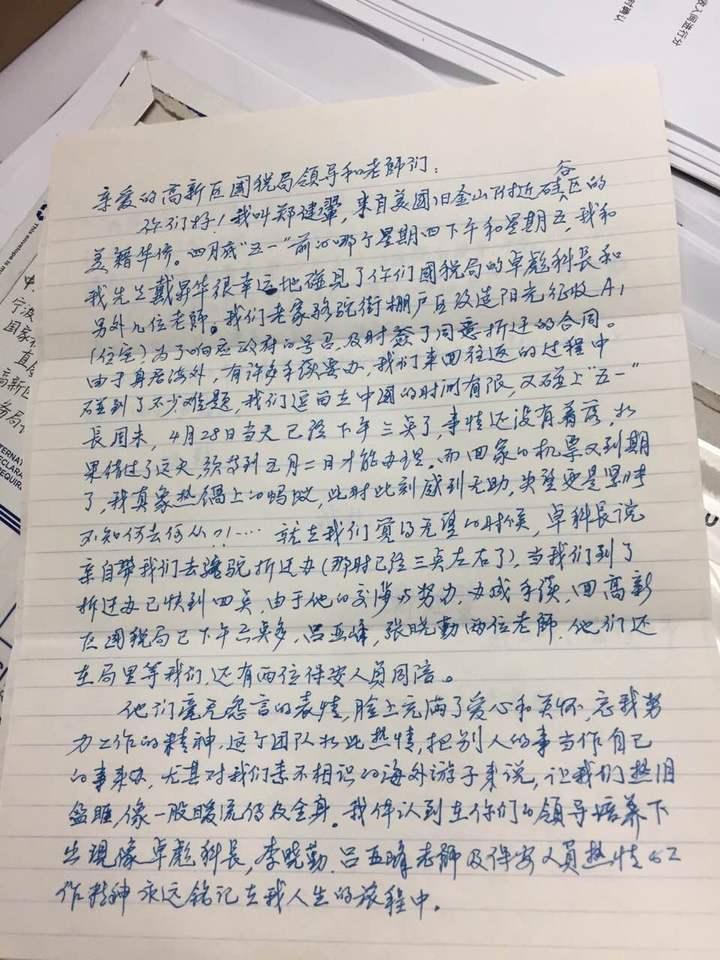 亲爱的高新区國税局领导和老師们:
你们好!我叫郑建翠,来自美國旧金山附近硅谷区的
美籍华侨。四月底"五一"前的那个星期四下午和星期五,我和
我先生戴昇华很幸运地碰見了你们國税局的卓彪科長和
另外几位老師。我们老家骆驼街棚户区改造阳光征收A1
(住宅)为了响应政府的号召,及时签了同意折迁的合同。
由于身居海外,有许多手续要办,我们来回往返的过程中
碰到了不少难题,我们逗留在中國的时间有限,又碰上"五一"
長周末,4月28日当天已经下午三点了,事情还没有着落,如
果错过了这天,须等到五月二日才能办理。而回家的机票又到期
了,我真象热碢上的蚂蚁,此时此刻感到无助,失望更是
不知何去何从?!……就在我们實得无望的时候,卓科長说
亲自带我们去骆驼折迁办(那时已经三点左右了),当我们到了
折迁办已快到四点,由于他的交涉与努力,办成手续,回高新
区國税局已下午六点多,吕亚峰,张晓勤两位老師,他们还
在局里等我们,还有两位保安人员同陪。
他们毫无怨言的表情,脸上充满了爱心和关怀,忘我努
力工作的精神,这个团队如此热情,把别人的事当作自己
的事来办,尤其对我们素不相识的海外游子来说,让我们热泪
盈眶,像一股暖流传及全身。我体认到在你们的领导培养下
出現像卓彪科長,李晓勤,吕亚峰老師及保安人员热情的工
作精神永远铭记在我人生的旅程中。
宁波
国家
直属
高新区
务局